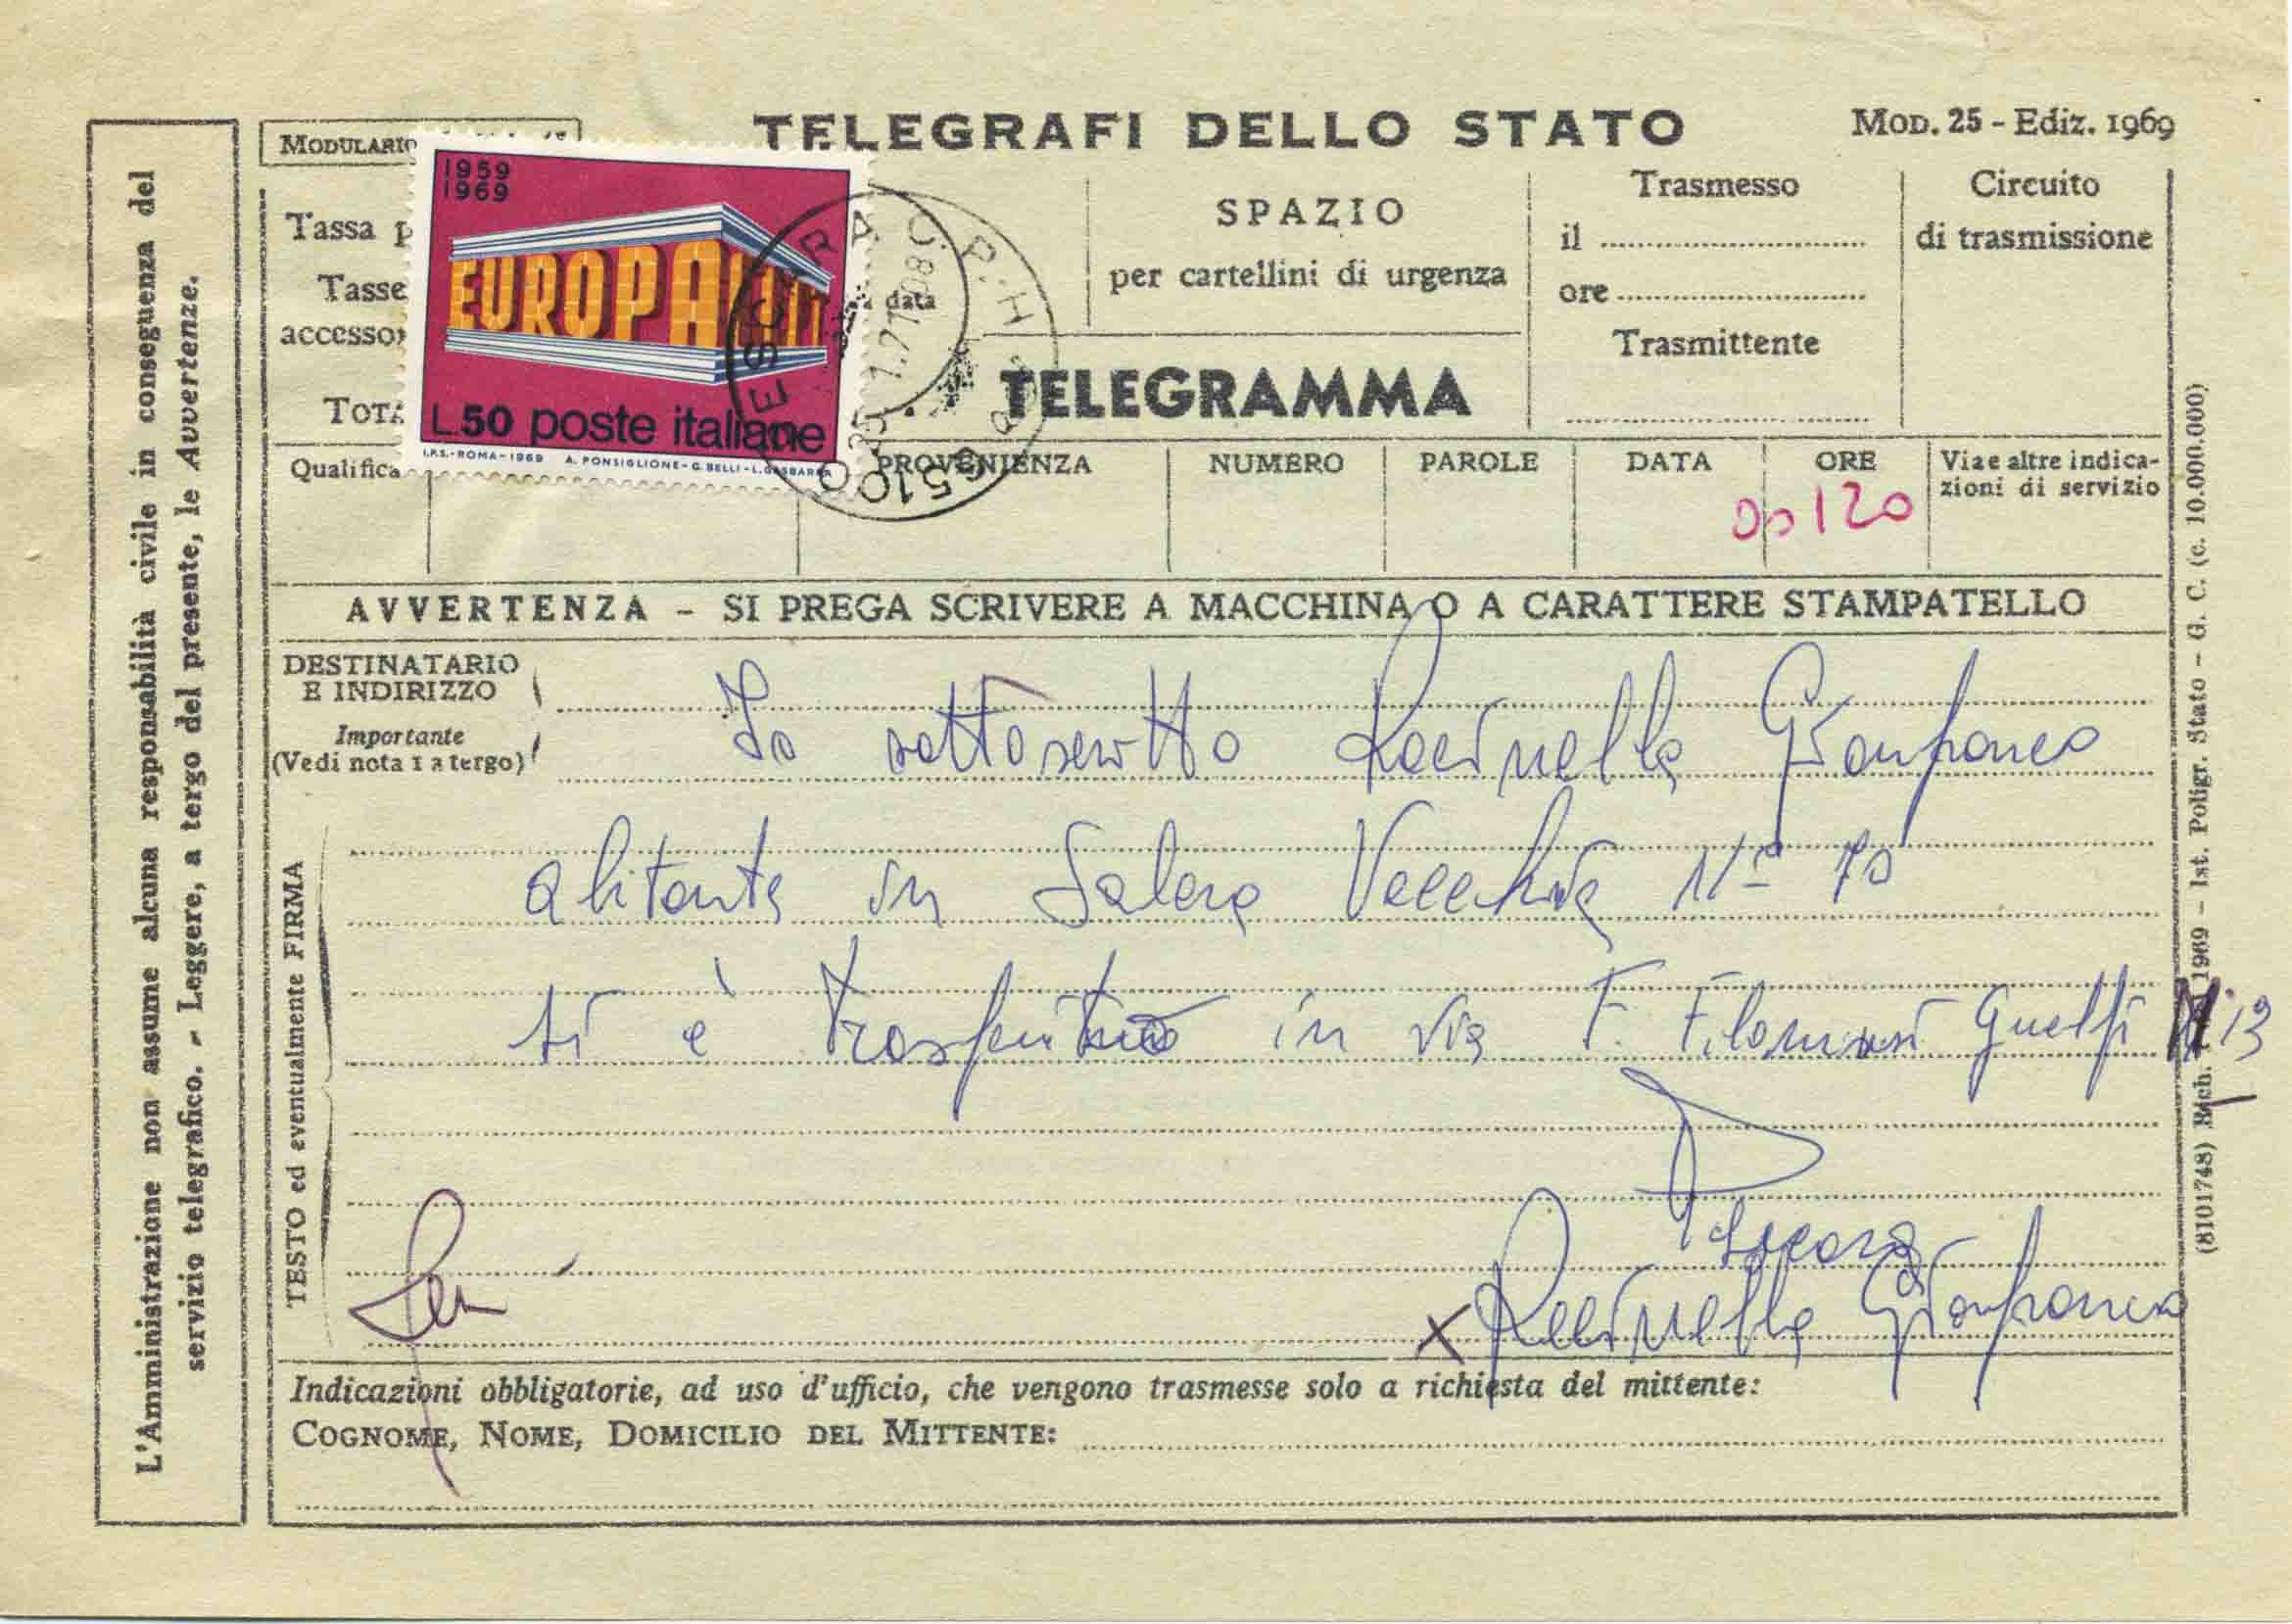 TELEGRAFI DELLO STATO
MOD. 25 - Ediz. 1969
MODULARIO
1959
1969
EUROPA CEPT
L.50 poste italiane
I.P.S.-ROMA-1969 A. PONSIGLIONE-G. BELLI-L. GASBARRA
PESCARA C.P.
65100
Tassa
Tasse
data
SPAZIO
per cartellini di urgenza
TELEGRAMMA
Trasmesso
il
ore
Trasmittente
Circuito
di trasmissione
Qualifica
PROVENIENZA
NUMERO
PAROLE
DATA
ORE
Via e altre indica-
zioni di servizio
AVVERTENZA - SI PREGA SCRIVERE A MACCHINA O A CARATTERE STAMPATELLO
DESTINATARIO
E INDIRIZZO
Importante
(Vedi nota 1 a tergo)
Io sottoscritto Gianfranco
abitante in Salara Vecchia N° 70
si è trasferito in via F. Filomusi Guelfi N° 13
Pescara
Gianfranco
TESTO ed eventualmente FIRMA
Indicazioni obbligatorie, ad uso d'ufficio, che vengono trasmesse solo a richiesta del mittente:
COGNOME, NOME, DOMICILIO DEL MITTENTE:
L'Amministrazione non assume alcuna responsabilità civile in conseguenza del
servizio telegrafico. - Leggere, a tergo del presente, le Avvertenze.
(8101748) Rich. 1969 - Ist. Poligr. Stato - G. C. (c. 10.000.000)